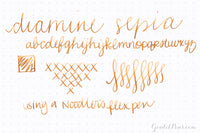 diamine sepia
abcdefghijklmnopqrstuvwxyz
using a Noodler's flex pen